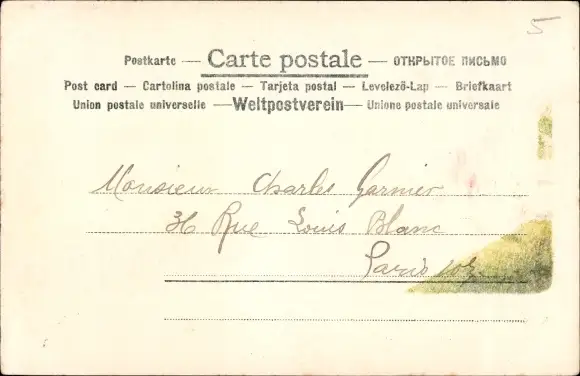 5
Postkarte — Carte postale — ОТКРЫТОЕ ПИСЬМО
Post card — Cartolina postale — Tarjeta postal — Levelező-Lap — Briefkaart
Union postale universelle — Weltpostverein — Unione postale universale
Monsieur Charles Garnier
36 Rue Louis Blanc
Paris